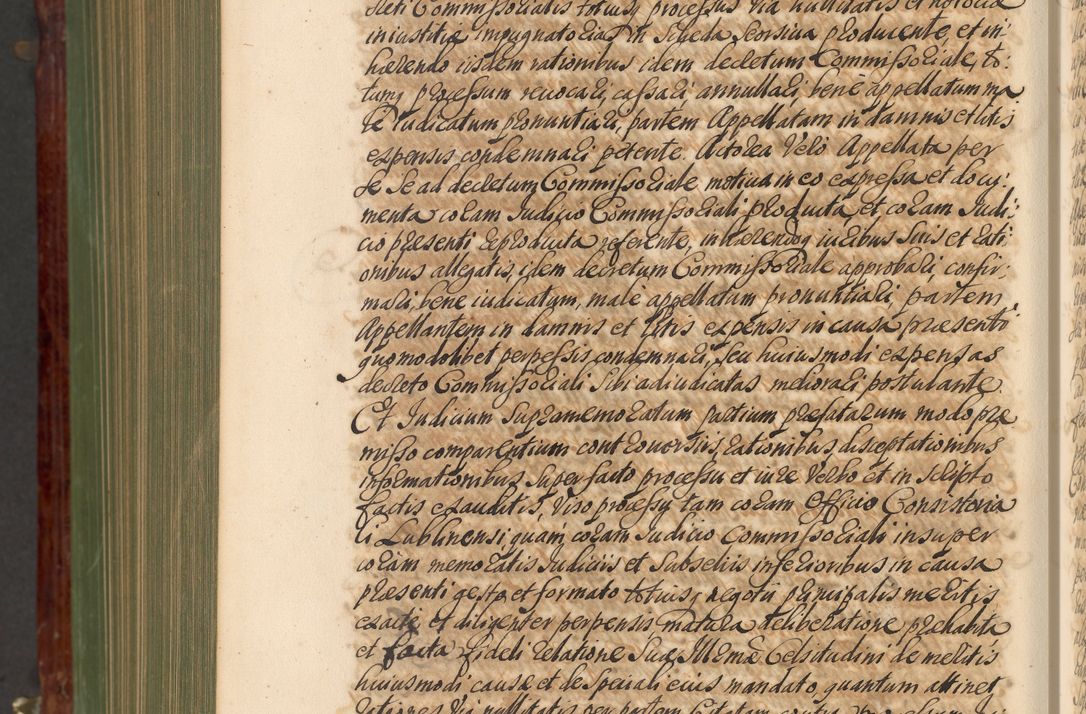 creti Commissorialis totiusq processus via nullitatis et notoria
iniustitiæ impugnatorias in Scheda Seorsiva producente, et in:
hærendo iisdem rationibus idem decretum Commissoriale, to:
tumq processum revocari, cassari annullari, bene appellatum ma
le iudicatum pronuntiari, partem Appellatam in damnis et litis
expensis condemnari petente. Actorea Verò Appellata per
se Se ad decretum Commissoriale motiva in eo expressa et docu:
menta coram Iudicio Commissoriali producta, et coram Iudi:
cio præsenti reproducta referente, inhærendoq iuribus Suis et rati:
onibus allegatis, idem decretum Commissoriale approbari, confir:
mari, bene iudicatum, male appellatum pronuntiari, partem
Appellantem in damnis et litis expensis in causa præsenti
quomodolibet perpessis condemnari, Seu huiusmodi expensas
decreto Commissoriali Sibi adiudicatas meliorari postulante.
Et Iudicium Supramemoratum partium præfatarum modo præ
misso comparentium controversiis, rationibus, disceptationibus
informationibus, Super facto processu et iure Verbo et in scripto
factis exauditis, Viso processu tam coram Officio Consistoria
li Lublinensi quam coram Iudicio Commissoriali insuper
coram memoratis Iudiciis et Subseliis inferioribus in causa
præsenti gesto et formato totiusq negotii principalis meritis
exacte et diligenter perpensis matura deliberatione præhabita
et facta fideli relatione Suæ Illmæ Celsitudini de meritis
huiusmodi causæ et de Speciali eius mandato, quantum attinet
Via nullitatis per partem Citatam contra